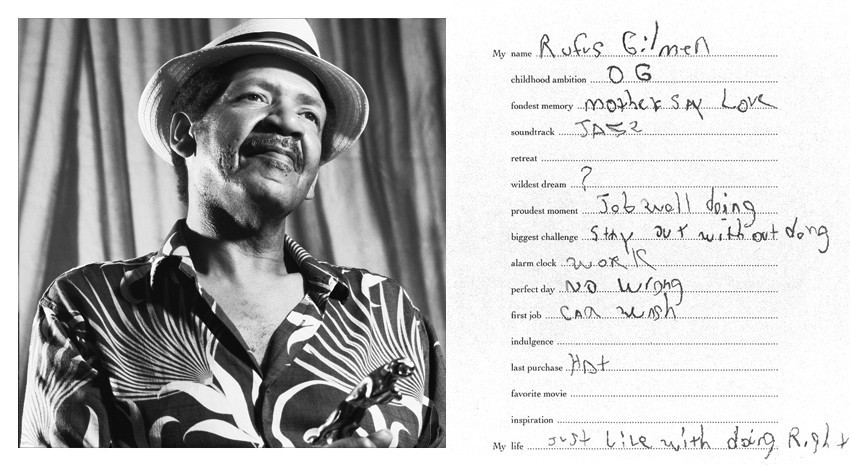 My name Rufus Gilmen
childhood ambition OG
fondest memory mother SAy Love
soundtrack JASz
retreat
wildest dream ?
proudest moment Job well doing
biggest challenge Stay out with out dong
alarm clock work
perfect day NO wrong
first job CAR wash
indulgence
last purchase HAt
favorite movie
inspiration
My life Just Live with doing Right